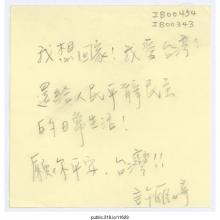 IB00454
IB00343
我想回家!我愛台灣!
還給人民平靜民主
的日常生活!
願你平安,台灣!!
public.318.io/11629